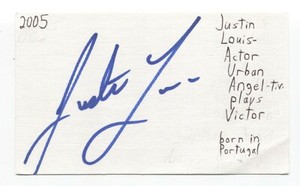 2005
Justin Lou
Justin
Louis-
Actor
Urban
Angel-t.v.
plays
Victor
born in
Portugal